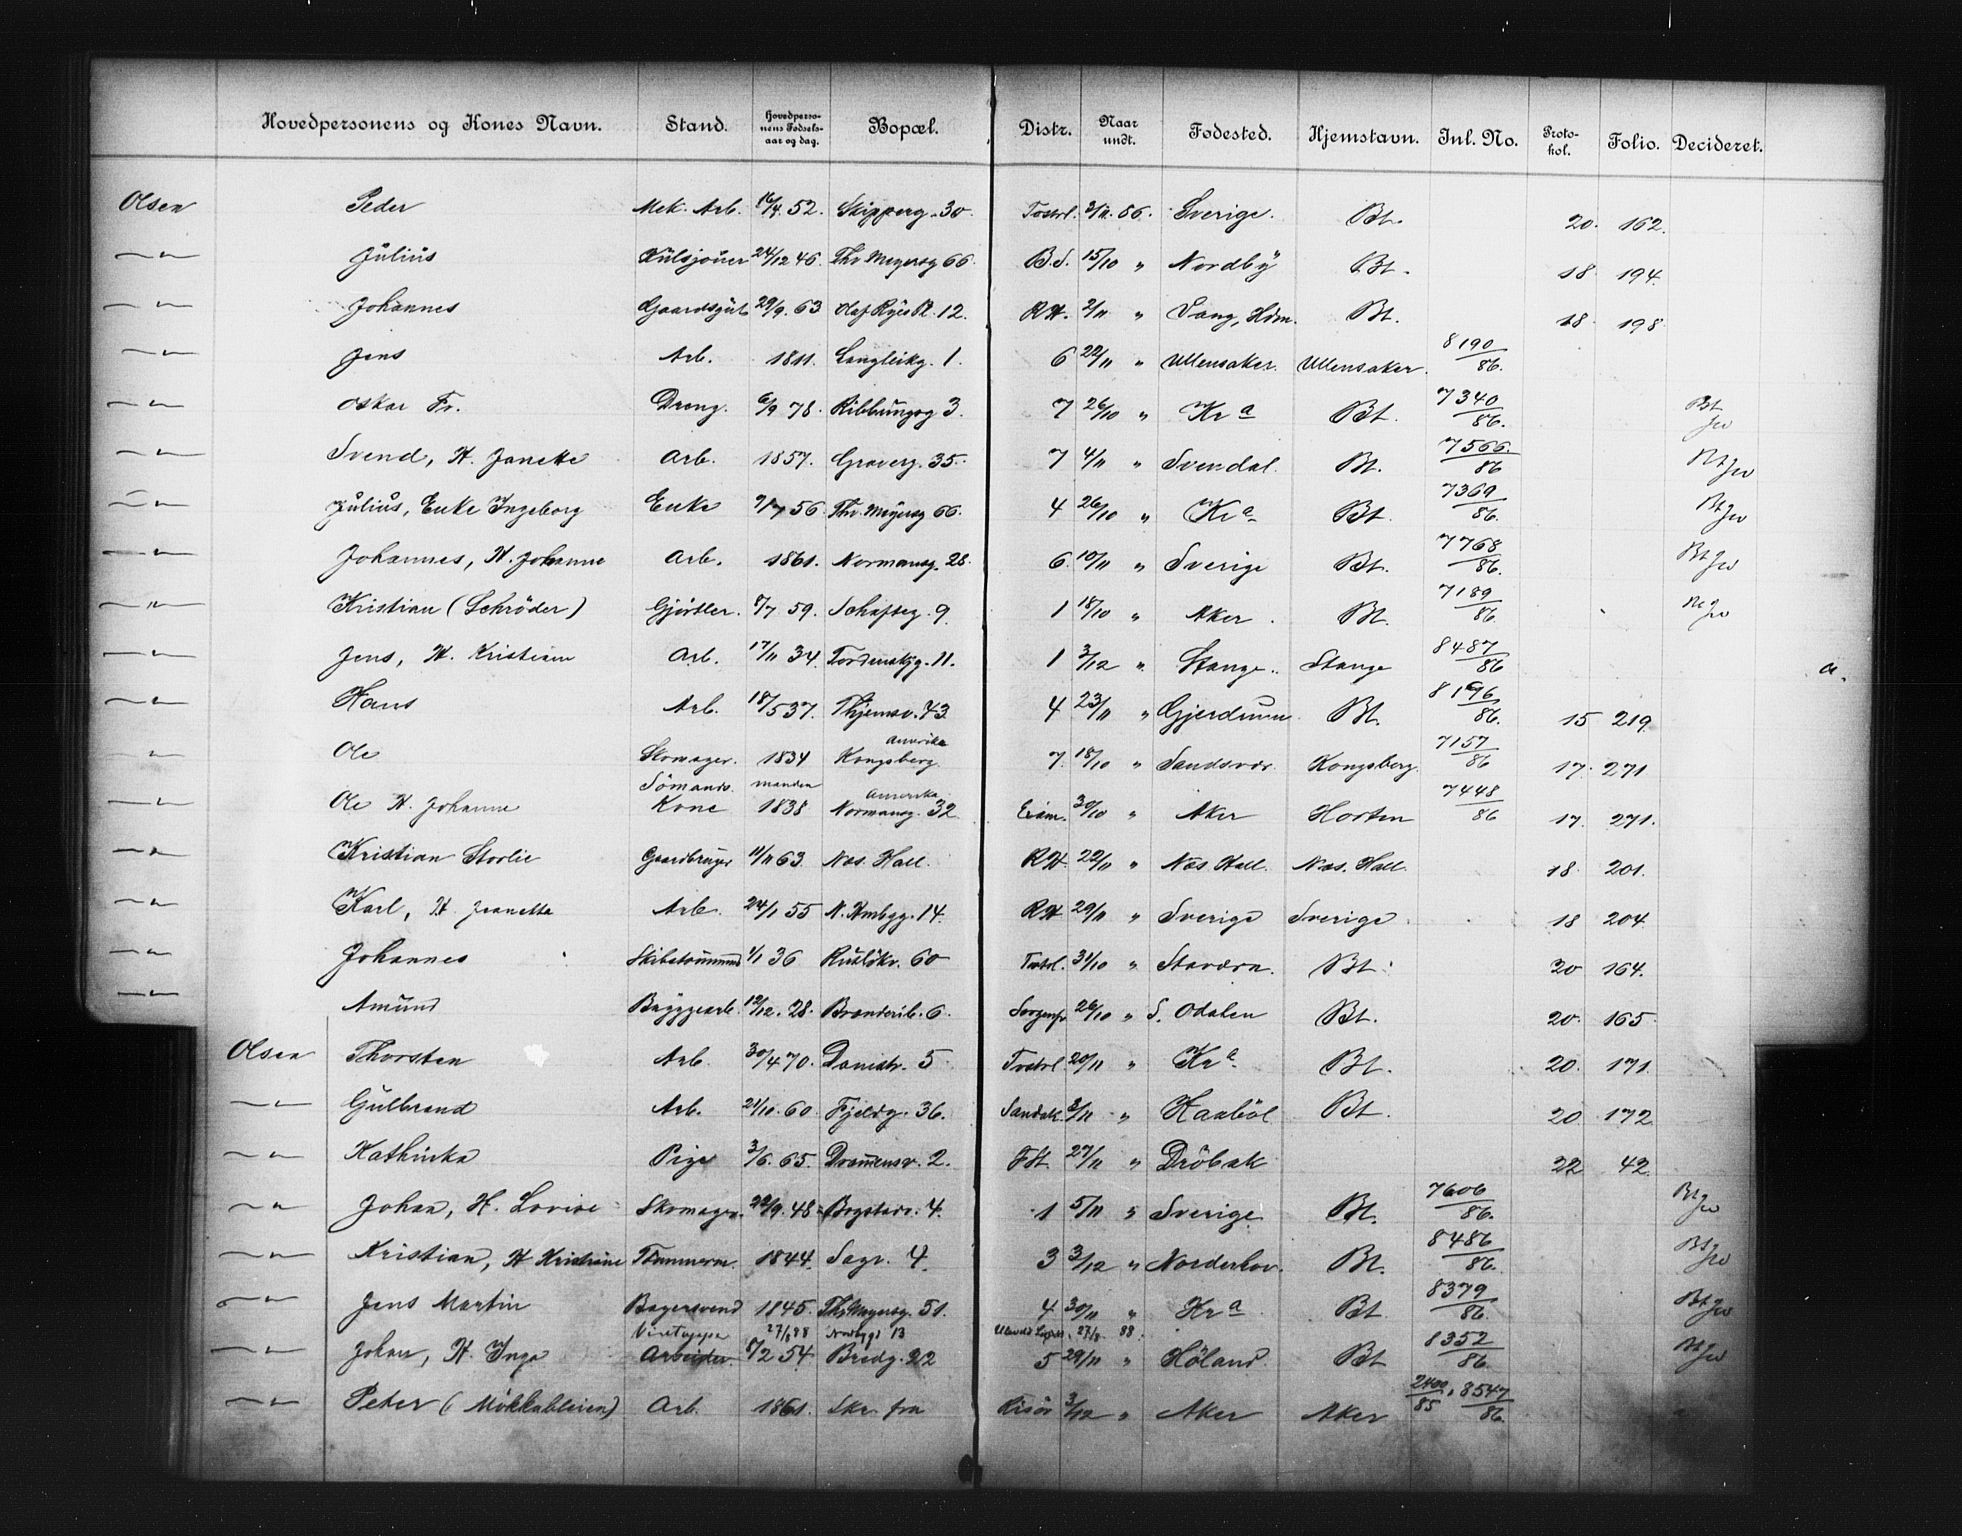 Hovedpersonens og Kones Navn. Stand. Hovedperso-nens Fødsels-aar og dag. Bopæl. Distr. Naar undt. Fødested. Hjemstavn. Inl. No. Proto-kol. Folio. Decideret.
Olsen Peder Mek. Arb. 16/4 52. Skipperg. 30. 2/11. 86. Sverige. Bt. 20. 162.
—„— Julius Kulsjouer 24/12 46. Thv Meyersg 66. B.S. 15/10 „ Nordby Bt. 18. 194.
—„— Johannes Gaardsgut 29/9. 63 Olaf Ryes Pl. 12. RH. 2/11 „ Vang, Hdm. Bt. 18. 198.
—„— Jens Arb. 1811. Langleikg. 1. 6 22/11 „ Ullensaker. Ullensaker. 8190/86.
—„— Oskar Fr. Dreng. 6/9 78. Ribbungsg 3. 7 26/10 „ Kra Bt. 7340/86. Bt
—„— Svend, H. Janette Arb. 1857. Graverg. 35. 7 4/11 „ Svendal. Bt. 7566./86 Bt
—„— Julius, Enke Ingeborg Enke 9/7 56. Thv. Meyersg 66. 4 26/10 „ Kra Bt. 7369/86. Bt
—„— Johannes, H. Johanne Arb. 1861. Normansg. 28. 6. 10/11 „ Sverige Bt. 7768/86. Bt
—„— Kristian (Schrøder) Gjørtler. 8/7 59. Schafteg. 9. 1 18/10 „ Aker. Bt. 7189/86. Bt
—„— Jens, H. Kristiane Arb. 17/11 34. Tordenskjg. 11. 1 3/12 „ Stange. Stange 8487/86 a.
—„— Hans Arb. 18/5 37. 43. 4 23/11 „ Gjerdrum. Bt. 8196/86. 15 219.
—„— Ole Skomager. 1834 Kongsberg. Amerika 7. 18/10 „ Sandsvær. Kongsberg. 7157/86 17. 271
—„— Ole H. Johanne Sömands Kone manden 1838 Normansg. 32. Amerika 30/10 „ Aker Horten 7448/86 17. 271.
—„— Kristian Storlie Gaardbruger 11/11 63. Næs. Hall. RH. 22/11 „ Næs Hall. Næs. Hall. 18. 201.
—„— Karl, H. Jeanetta Arb. 24/1 55 N. Hmbgg. 14. RH. 29/11 „ Sverige Sverige. 18 204.
—„— Johannes Skibstømmermd 1/1 36 Ruslökv. 60 31/10 „ Stavern. Bt. 20 164.
—„— Amund Byggearb. 12/12. 28. 6. 26/10 „ S. Odalen Bt. 20. 165.
Olsen Thorsten Arb. 30/4 70. Damstr. 5 20/11 „ Kra Bt. 20. 171.
—„— Gulbrand Arb. 21/10. 60. Fjeldg. 36. Sandak. 3/11 „ Haabøl Bt. 20 172
—„— Kathinka Pige 3/6. 65. Dramensv. 2. 27/11 „ Dröbak 22 42.
—„— Johan, H. Lovise Skomager. 22/9. 48. Bogstadv. 4. 1 5/11 „ Sverige. Bt. 7606/86. Bt
—„— Kristian, H. Kristiane Tømmerm. 1844. Sagv. 4. 3 3/12 „ Norderhov. Bt. 8486/86. Bt
—„— Jens Martin Bagersvend 1845. Thv Meyersg. 51. 4 30/11 „ Kra Bt 8379/86. Bt
27/8 88 Nordbygt 13 27/8. 88.
—„— Johan, H. Inga Arbeider 8/2 54 Bredg. 22 5 29/11 „ Høland. Bt 8352/86. Bt
—„— Peter (Møkkableien) Arb. 1861. Skr. fra Risør 3/12 „ Aker Aker 2400/85 „ 8547/86.